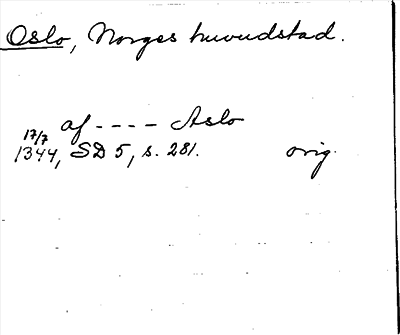 Oslo, Norges huvudstad.
af ---- Aslo
17/7
1344, SD 5, s. 281. orig.